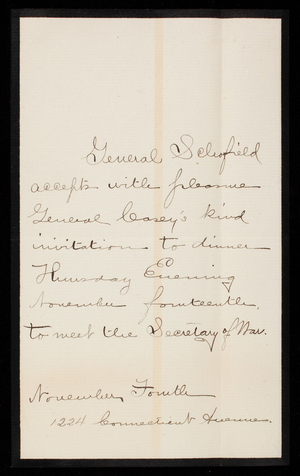 General Schofield
accepts with pleasure
General Casey's kind
invitation to dinner
Thursday Evening
November fourteenth,
to meet the Secretary of War.
November Fourth
1224 Connecticut Avenue.